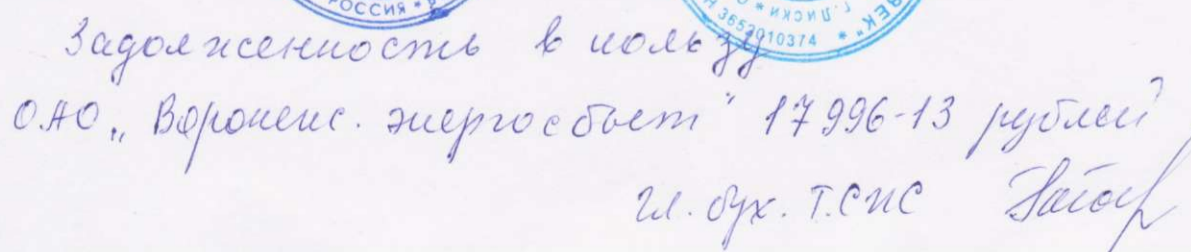 РОССИЯ *
* г. ЛИСКИ *
3652010374 *
ВЕК"
Задолженность в пользу
ОАО „Воронеж. энергосбыт" 17996-13 рублей
гл. бух. Т.СЖС